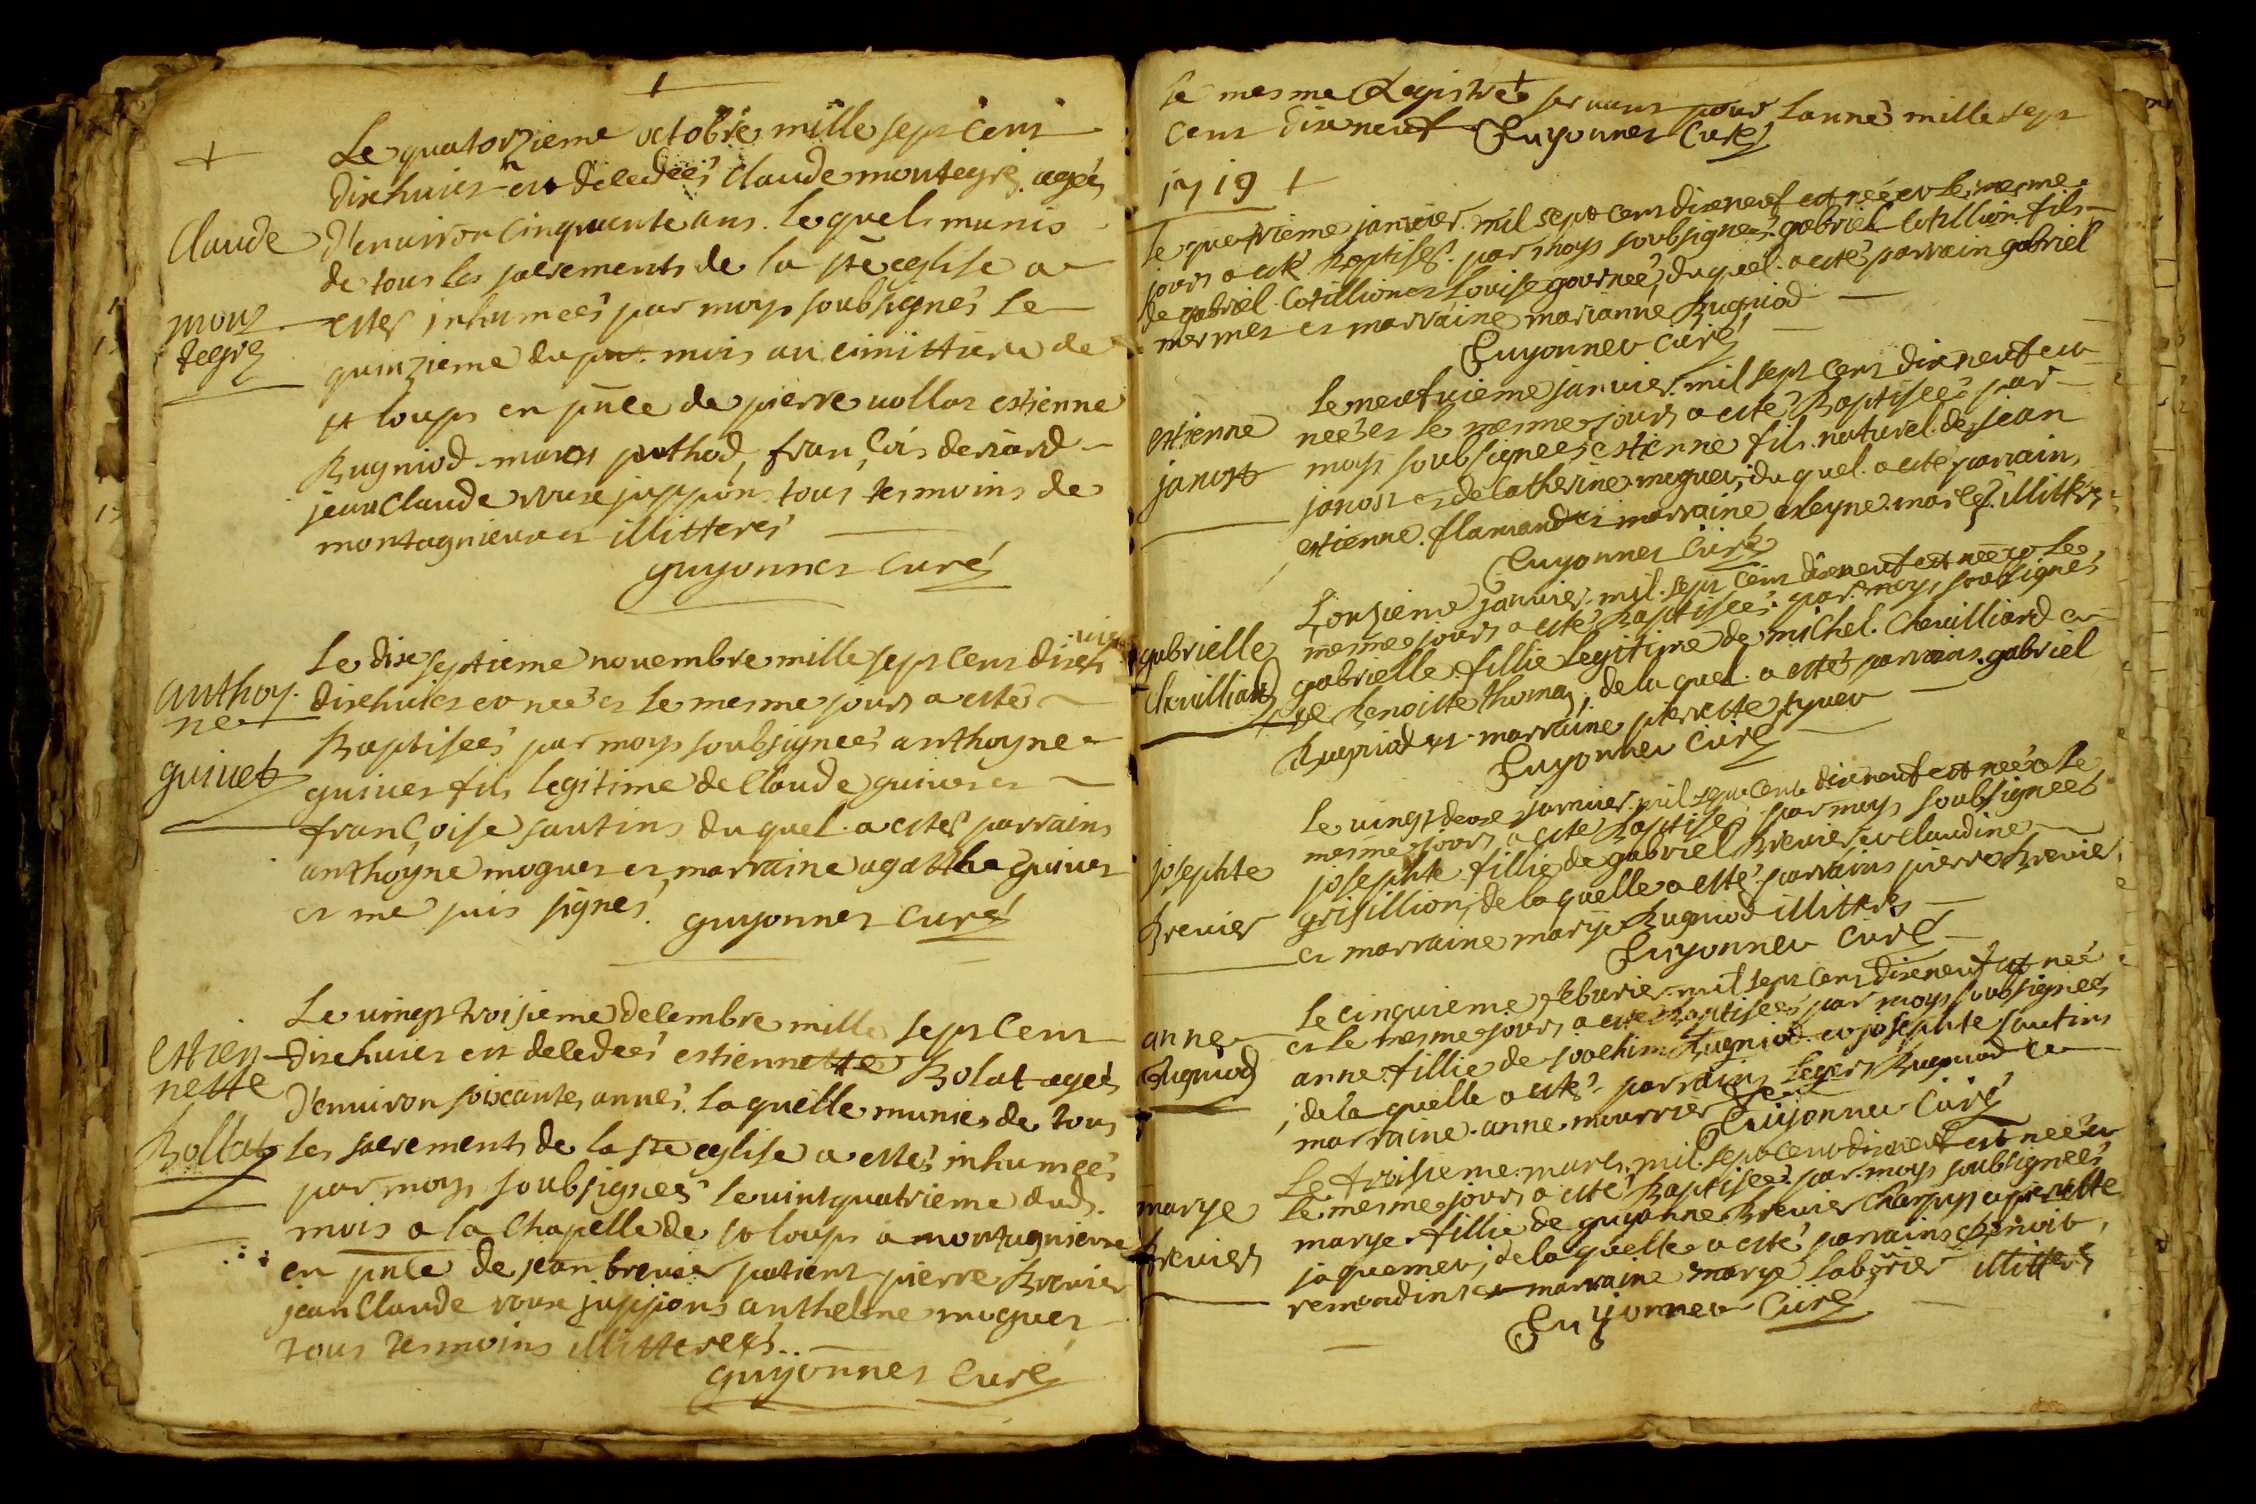 Le quatorzieme octobre mille sept cent
dixhuict est deledeés Claude montegre ageé
Claude
d'environ cinquante ans. lequel munis
de tous les sacrements de la ste eglise a
mon
tegre
estes inhumeés par moys soubsignés le
quinzieme du mois au cimittiere de
st loups en pnce de pierre vollat estienne
Bugniod marc puthod, françois derard
jean Claude roux juppions tous tesmoins de
montagnieux et illitterés
guyonnet curé
Le dix septieme novembre mille sept cent
anthoy-
ne
dixhuict et neé et le mesme jours a estés
Baptiseés par moys soubsigneés anthoyne
guinet
guinet fils legitime de Claude guinet et
françoise santins duquel a estes parrains
anthoyne moguet et marraine agatthe guinet
et me suis signés guyonnet curé
Le vingt troisieme decembre mille sept cent
estien-
nette
dixhuict est deledeés estiennette Bolat ageés
d'environ soixante annes. laquelle munie de tous
Bollat
les sacrements de la ste eglise a estes inhumeés
par moys soubsignes le vint quatrieme dud.
mois a la Chapelle de st loups a montagnieux
en pnce de jean brevet patient pierre Brevet
jean Claude roux juppions anthelme moguet
tous tesmoins illitterés..
guyonnet curé
le mesme Registre servant pour l'anné mille sept
cent dixneuf Guyonnet Curé
1719
Le quatrieme janvier mil sept cent dixneuf est neé et le mesme
jours a esté Baptises par moys soubsigneés gabriel Cotillion fils
de gabriel Cotillion et Louise gourneé, duquel a esté parrain gabriel
mermet et marraine marianne Bugniod
Guyonnet curé
Le neufvieme janvier mil sept cent dixneuf est
estienne
neés et le mesme jours a esté Baptiseés par
janost
moys soubsigneés estienne fils naturel de jean
janost et de Catherine moguet, duquel a esté parrains
estienne flamand et marraine illitterés
Guyonnet Curé
L'onsieme janvier mil sept cent dixneuf est neé et le
gabrielle
mesme jours a esté Baptiseés par moys soubsignés
Chevilliard
gabrielle fillie legitime de michel Chevilliard et
de Benoitte thomas, de la quel a estés parrains gabriel
Bugniod et marraine pierrette
Guyonnet Curé
Le vingt deux janvier mil sept cent dixneuf est neé et le
mesme jours a esté Baptises par moys soubsigneés
josephte
josephte fillie de gabriel Brevet et Claudine
Brevet
grisillion, de laquelle a esté parrains pierre Brevet
et marraine marye Bugniod illittres
Guyonnet Curé
Le cinquieme febvrier mil sept cent dixneuf est neé
anne
et le mesme jours a esté Baptiseés par moys soubsigneés
Bugniod
anne fillie de joachim Bugniod et josephte santins
, de la quelle a estes parrains leger Bugniod et
marraine anne mourrier
Guyonnet Curé
Le troisieme mars mil sept cent dixneuf est neé et
marye
le mesme jours a esté Baptisee par moys soubsigneés
Brevet
marye fillie de guyonne Brevet et pierrette
jaquemet, de laquelle a esté parrains Benoit
remondins et marraine marye illitterés
Guyonnet Curé